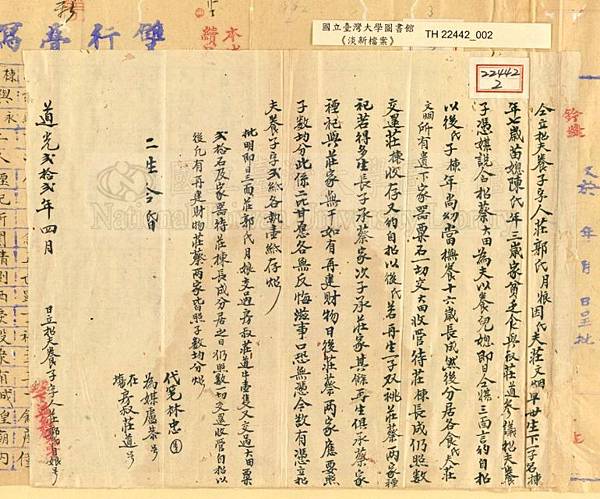 國立臺灣大學圖書館
《淡新檔案》
TH 22442_002
22442
2
仝立招夫養子字人莊郭氏月娘因氏夫莊文烟早世生下一子名棟
年七歲苗媳陳氏年三歲家貧乏食與叔莊道參議招夫養
子憑媒說合招蔡大田為夫以養兒媳即日仝媒三面言約自招
以後氏子棟年尚幼當撫養十六歲長成然後分居各食氏夫莊
文烟所有遺下家器粟石一切交大田收管待莊棟長成仍照數
交還莊棟收存又約自招以後氏若再生一子双桃莊蔡兩家種
祀若得多生長子承蔡家次子承莊家其餘再生俱承蔡家
種祀與莊家無干如有再建財物日後莊蔡兩家應要照
子數均分此係二比甘愿各無反悔滋事口恐無憑今欲有憑立招
夫養子字弍紙各執壹紙存炤
批明即日三面莊郭氏月娘交過房叔莊道牛壹隻又交過大田粟
弍拾石及家器待莊棟長成分居之日仍照數交還收管自招以
後凡有再建財物莊蔡兩家皆照子數均分炤
代笔林忠
為媒盧泰
在場房叔莊道
二生合昏
道光弍拾弍年四月 日立招夫養子字人莊郭氏月娘
年 月 日呈批